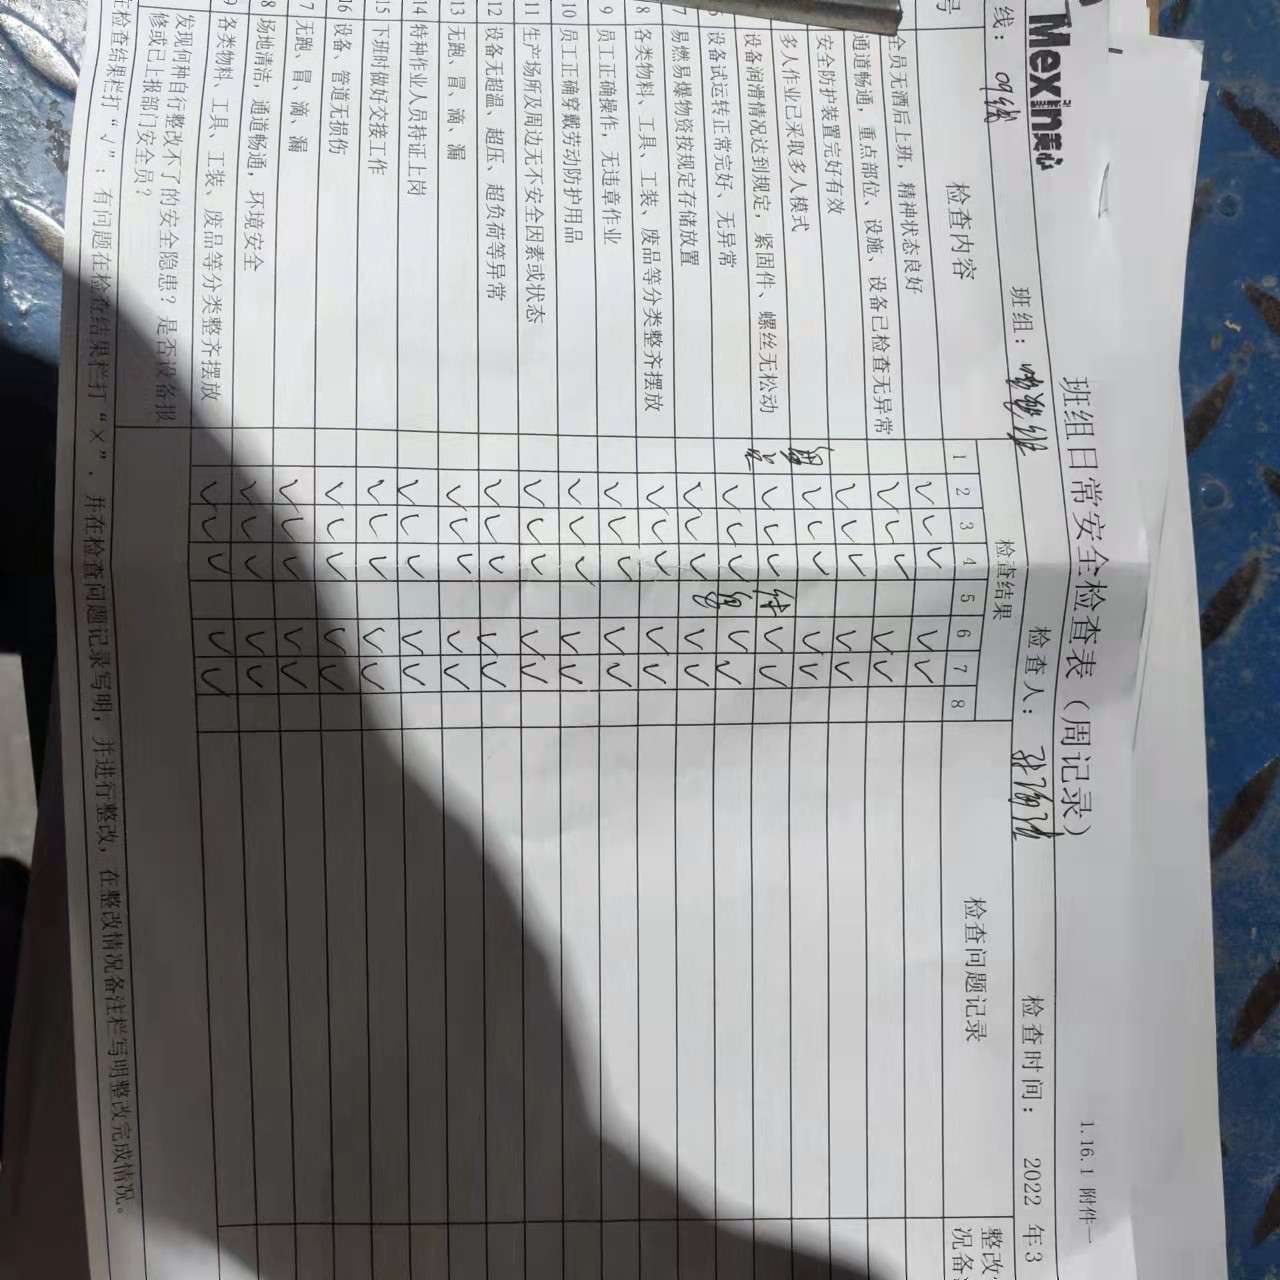 Mexin美心
1.16.1 附件一
班组日常安全检查表（周记录）
线：09线 班组： 检查人： 检查时间： 2022 年3
号 检查内容 检查结果 检查问题记录 整改
况备
1 2 3 4 5 6 7 8
全员无酒后上班，精神状态良好 √ √ √ √ √
通道畅通，重点部位、设施、设备已检查无异常 √ √ √ √ √
安全防护装置完好有效 √ √ √ √ √
多人作业已采取多人模式 √ √ √ √ √
设备润滑情况达到规定，紧固件、螺丝无松动 √ √ √ √ √
设备试运转正常完好、无异常 √ √ √ √ √
7 易燃易爆物资按规定存储放置 √ √ √ √ √
8 各类物料、工具、工装、废品等分类整齐摆放 √ √ √ √ √
9 员工正确操作，无违章作业 √ √ √ √ √
10 员工正确穿戴劳动防护用品 √ √ √ √ √
11 生产场所及周边无不安全因素或状态 √ √ √ √ √
12 设备无超温、超压、超负荷等异常 √ √ √ √ √
13 无跑、冒、滴、漏 √ √ √ √ √
14 特种作业人员持证上岗 √ √ √ √ √
15 下班时做好交接工作 √ √ √ √ √
16 设备、管道无损伤 √ √ √ √ √
7 无跑、冒、滴、漏 √ √ √ √ √
8 场地清洁，通道畅通，环境安全 √ √ √ √ √
9 各类物料、工具、工装、废品等分类整齐摆放 √ √ √ √ √
发现何种自行整改不了的安全隐患？是否设备报
修或已上报部门安全员？
检查结果栏打“√”；有问题在检查结果栏打“×”，并在检查问题记录写明，并进行整改，在整改情况备注栏写明整改完成情况。